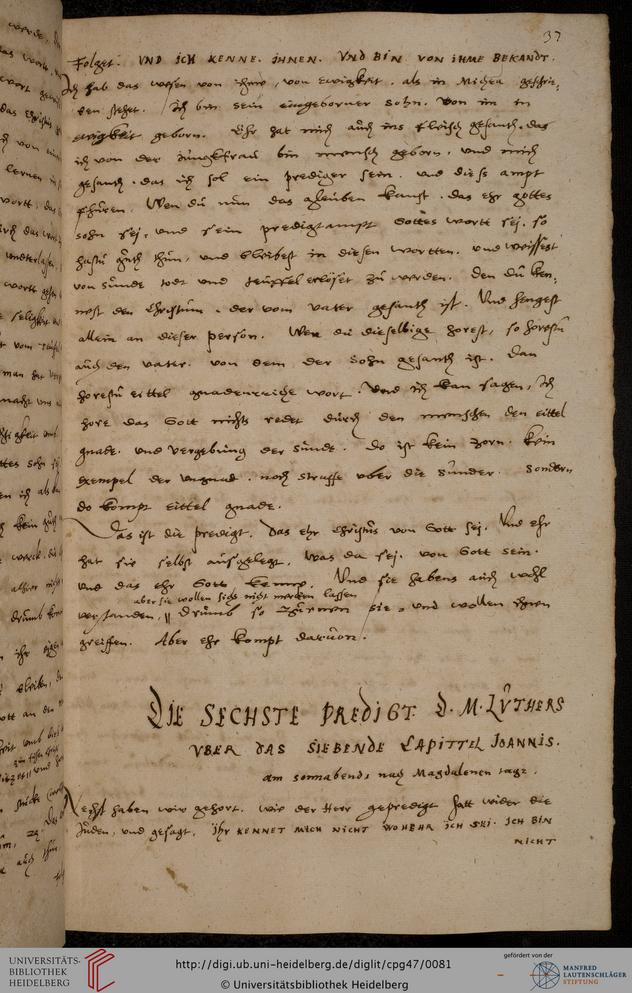 37
Folget. VND ICH KENNE. IHNEN. VND BIN VON IHME BEKANDT.
Ich hab das wesen von ihme, von ewigkeit, als in Michea geschrie-
ben stehet. Ich bin sein eingeborner sohn. Von im in
ewigkeit geborn. Ehr hat mich auch ins fleisch gesanth. das
ich von der Jungkfrau bin mensch geborn, und mich
gesanth, das ich sol ein prediger sein. und diese ampt
fhuren. Wen du nun das gleuben kanst, das ehr gottes
sohn sej, und sein predigtampt Gottes wortt sej, so
hastu guth thun, und bleibest in diesen wortten. und weissest
von sunde todt und teuffel erlöset zu werden. den du ken-
nest den Christum, der vom vater gesanth ist. Und hengest
allein an dieser person. Wen du dieselbige horest, so horestu
auch den vater. von dem der sohn gesanth ist. Dan
horestu eittel gnadenreiche wort. Und ich kan sagen, Ich
hore das Gott nichts redet durch den menschen den eittel
gnade. und vergebung der sunde. Do ist kein zorn. kein
exempel der ungnad, noch straffe uber die sunder. Sondern
do kompt eittel gnade.
Das ist die predigt, das ehr Christus von Gott sej. Und ehr
hat sie selbst ausgelegt, was da sej, von Gott sein.
und das ehr Gott kenne. Und sie habens auch wohl
aber sie wollen sichs nicht mercken lassen
verstanden, drumb so zurnen sie, und wollen ihnen
greiffen. Aber ehr kompt davon.
DIE SECHSTE PREDIGT D. M. LUTHERS
VBER DAS SIEBENDE CAPITTEL JOANNIS.
am sonnabends nach Magdalenen tage.
Nechst haben wir gehort, wie der Herr gepredigt hatt wider die
Juden, und gesagt, IHR KENNET MICH NICHT WOHEHR ICH SEI. ICH BIN
NICHT
UNIVERSITÄTS-
BIBLIOTHEK
HEIDELBERG
http://digi.ub.uni-heidelberg.de/diglit/cpg47/0081
© Universitätsbibliothek Heidelberg
gefördert von der
MANFRED
LAUTENSCHLÄGER
STIFTUNG